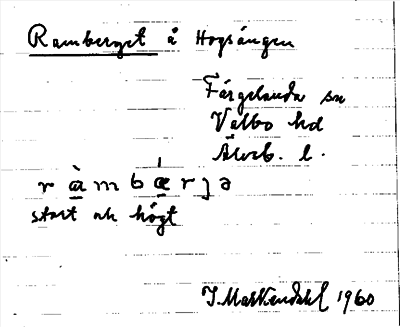 Ramberget å Hogsängen
Färgelanda sn
Valbo hd
Älvsb. l.
r à m b ǽ r j ə
stort och högt
J. Markendahl 1960